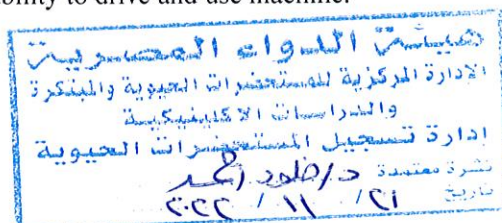 ability to drive and use machine.
هيئة الدواء المصرية
الإدارة المركزية للمستحضرات الحيوية والمبتكرة
والدراسات الاكلينيكية
إدارة تسجيل المستحضرات الحيوية
نشرة معتمدة د/خلود أحمد
تاريخ ٢١ / ١١ / ٢٠٢٢